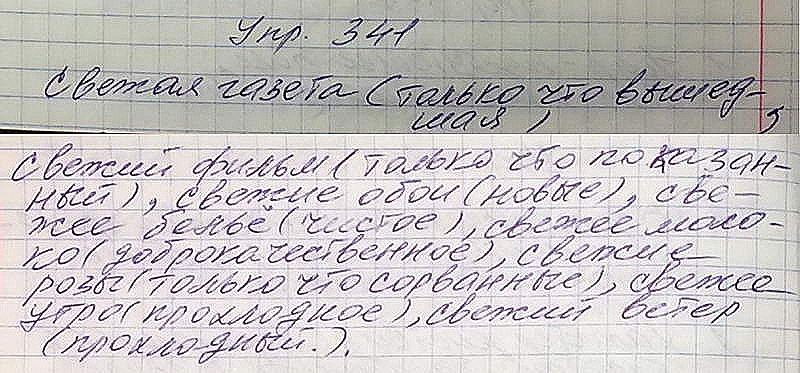 Упр. 341
Свежая газета (только что вышед-
шая),
свежий фильм (только что показан-
ный), свежие обои (новые), све-
жее бельё (чистое), свежее моло-
ко (доброкачественное), свежие
розы (только что сорванные), свежее
утро (прохладное), свежий ветер
(прохладный.).